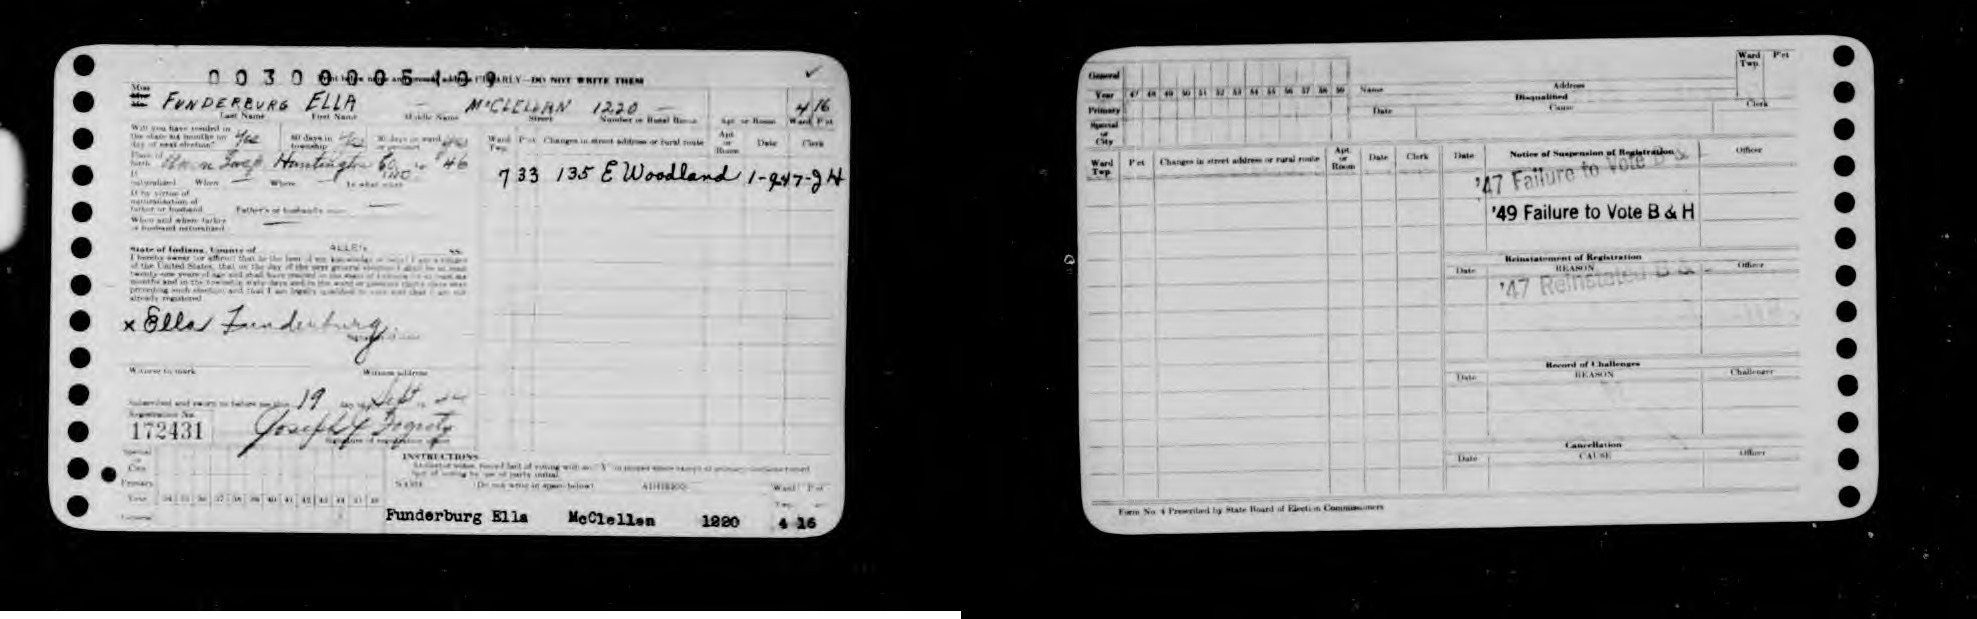 Print below name and present address CLEARLY—DO NOT WRITE THEM
Miss
FUNDERBURG ELLA — McCLELLAN 1220 — 4 16
Last Name First Name Middle Name Street Number or Rural Route Apt. or Room Ward P'ct
Will you have resided in
the state six months on
day of next election? Yes 60 days in township Yes 30 days in ward or precinct Yes
Place of birth Union Twp Huntington Co IND 46
If naturalized When — Where — In what court
If by virtue of
naturalization of
father or husband Father's or husband's name —
When and where father
or husband naturalized —
Ward Twp. P'ct Changes in street address or rural route Apt. or Room Date Clerk
7 33 135 E Woodland
State of Indiana, County of ALLEN SS.
I hereby swear (or affirm) that to the best of my knowledge
of the United States, that on the day of the next general election I shall be at least
twenty-one years of age and shall have resided in the state of Indiana for at least six
months and in the township sixty days and in the ward or precinct thirty days next
preceding such election, and that I am legally qualified to vote and that I am not
already registered
x Ella Funderburg
Witness to mark Witness address
Subscribed and sworn to before me this 19 day of Sept
Registration No.
172431
Signature of registration officer
INSTRUCTIONS
Special or City
Primary
Year 34 35 36 37 38 39 40 41 42 43 44 45 46
General
NAME (Do not write in space below) ADDRESS Ward P'ct
Funderburg Ella McClellan 1220 4 16
General
Year 47 48 49 50 51 52 53 54 55 56 57 58 59
Primary
Special or City
Name Address Ward Twp. P'ct
Disqualified
Date Cause Clerk
Ward Twp. P'ct Changes in street address or rural route Apt. or Room Date Clerk
Date Notice of Suspension of Registration Officer
'47 Failure to Vote B &
'49 Failure to Vote B & H
Reinstatement of Registration
Date REASON Officer
'47 Reinstated B &
Record of Challenges
Date REASON Challenger
Cancellation
Date CAUSE Officer
Form No. 4 Prescribed by State Board of Election Commissioners